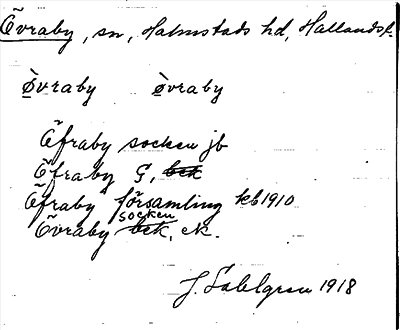 Övraby, sn, Halmstads hd, Hallands l.
Övraby Övraby
Öfraby socken jb
Öfraby G, bek
Öfraby församling kb 1910
Övraby bek socken, ek.
J. Sahlgren 1918